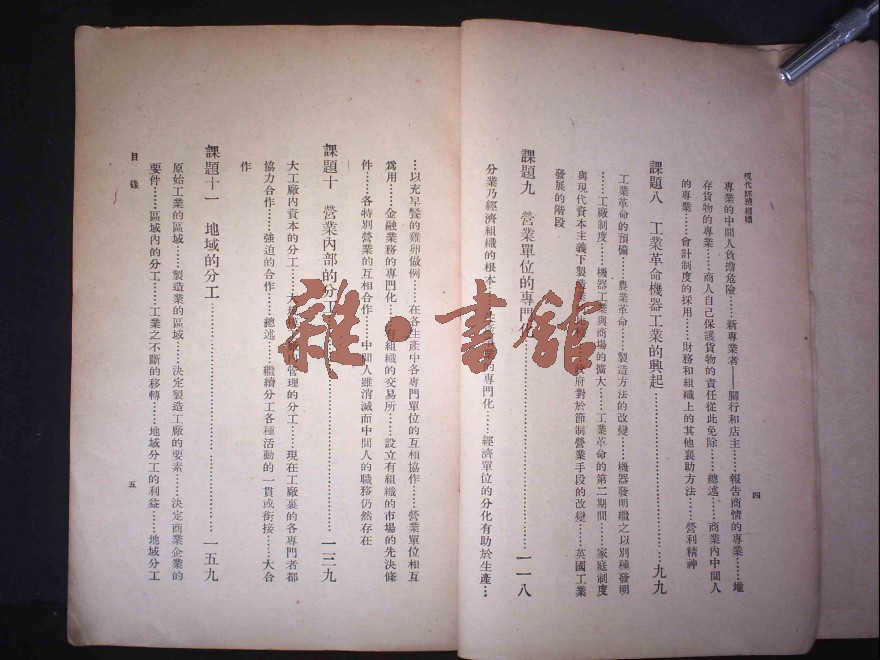 現代經濟組織
專業的中間人負擔危險……新專業者——腳行和店主……報告商情的專業……堆
存貨物的專業……商人自己保護貨物的責任從此免除……總述……商業內中間人
的專業……會計制度的採用……財務和組織上的其他襄助方法……營利精神
四
課題八 工業革命機器工業的興起……九九
工業革命的預備……農業革命……製造方法的改變……機器發明繼之以別種發明
……工廠制度……機器工業與商場的擴大……工業革命的第二期間……家庭制度
與現代資本主義下製造業 政府對於節制營業手段的改變……英國工業
發展的階段
課題九 營業單位的專門化……一一八
分業乃經濟組織的根本 的專門化……經濟單位的分化有助於生產…
…以充早餐的雞卵做例……在各生產中各專門單位的互相協作……營業單位相互
為用……金融業務的專門化……有組織的交易所……設立有組織的市場的先決條
件……各特別營業的互相合作……中間人雖消滅而中間人的職務仍然存在
課題十 營業內部的分工……一三九
大工廠內資本的分工……大 管理的分工……現在工廠裏的各專門者都
協力合作……強迫的合作……總述……繼續分工各種活動的一貫或銜接……大合
作
課題十一 地域的分工……一五九
原始工業的區域……製造業的區域……決定製造工廠的要素……決定商業企業的
要件……區域內的分工……工業之不斷的移轉……地域分工的利益……地域分工
目錄
五
雜·書館